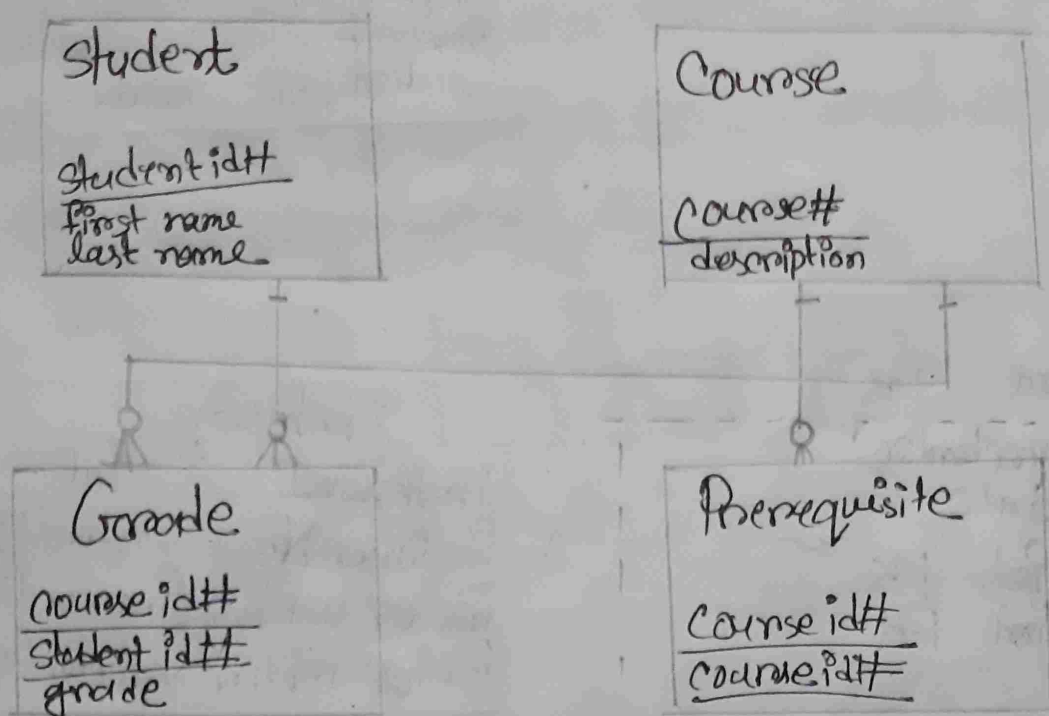 Student
student id#
first name
last name
Course
course#
description
Grade
course id#
student id#
grade
Prerequisite
course id#
course id#